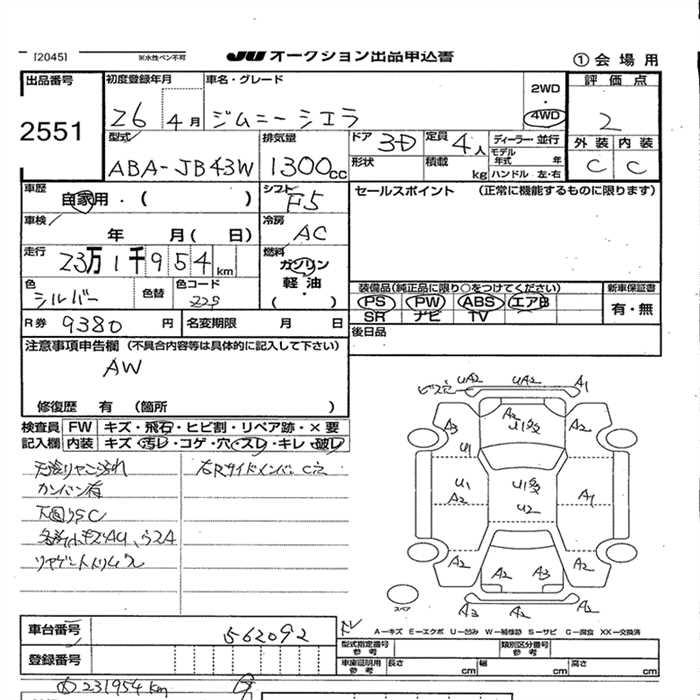 [2045]
※水性ペン不可
JU オークション出品申込書
①会場用
出品番号
2551
初度登録年月
26 4月
車名・グレード
ジムニーシエラ
2WD
・
4WD
評価点
2
型式
ABA-JB43W
排気量
1300cc
ドア
3D
定員
4人
形状
積載
kg
ディーラー・並行
モデル年式 年
ハンドル 左・右
外装 内装
C C
車歴
自家用・( )
シフト
F5
セールスポイント (正常に機能するものに限ります)
車検
年 月( 日)
冷房
AC
走行
23万1千954km
燃料
ガソリン
軽油
・( )
色
シルバー
色替
色コード
装備品(純正品に限り○をつけてください)
PS PW ABS エアB
SR ナビ TV
新車保証書
有・無
R券 9380 円
名変期限 月 日
後日品
注意事項申告欄 (不具合内容等は具体的に記入して下さい)
AW
修復歴 有 (箇所 )
検査員記入欄
FW キズ・飛石・ヒビ割・リペア跡・×要
内装 キズ・汚レ・コゲ・穴・スレ・キレ・破レ
カンバン有
下回りSC
右Rサイドメンバー C穴
ビス穴 UA2 UA2 A1
A3 A2 U1多 A2
U1
U1 A2 U1多 U2 A1
A2 A2 A3 A2
A3 A2 A2
スペア
車台番号
562092
A-キズ E-エクボ U-凹み W-補修跡 S-サビ C-腐食 XX-交換済
登録番号
型式指定番号 参考
類別区分番号 参考
車庫証明用 参考
長さ cm 幅 cm 高さ cm
231954km